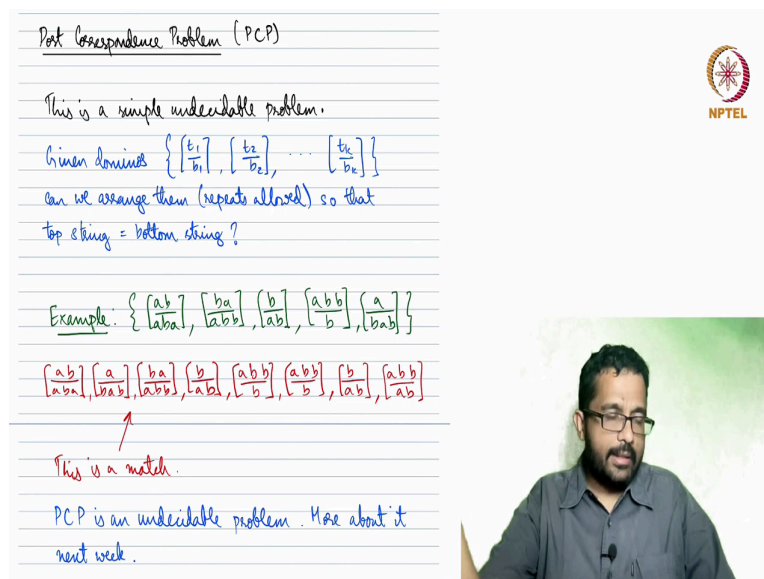 Post Correspondence Problem (PCP)
NPTEL
This is a simple undecidable problem.
Given dominos { [t₁/b₁], [t₂/b₂], ... [tₖ/bₖ] }
can we arrange them (repeats allowed) so that
top string = bottom string?
Example: { [ab/aba], [ba/abb], [b/ab], [abb/b], [a/bab] }
[ab/aba], [a/bab], [ba/abb], [b/ab], [abb/b], [abb/b], [b/ab], [abb/ab]
This is a match.
PCP is an undecidable problem. More about it
next week.